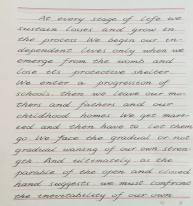 At every stage of life we
sustain losses and grow in
the process. We begin our in-
dependent lives only when we
emerge from the womb and
lose its protective shelter.
We enter a progression of
schools, then we leave our mo-
thers and fathers and our
childhood homes. We get marr-
ied and then have to let them
go. We face the gradual or not
gradual waning of our own stren-
gth. And ultimately, as the
parable of the open and closed
hand suggests we must confront
the inevitability of our own